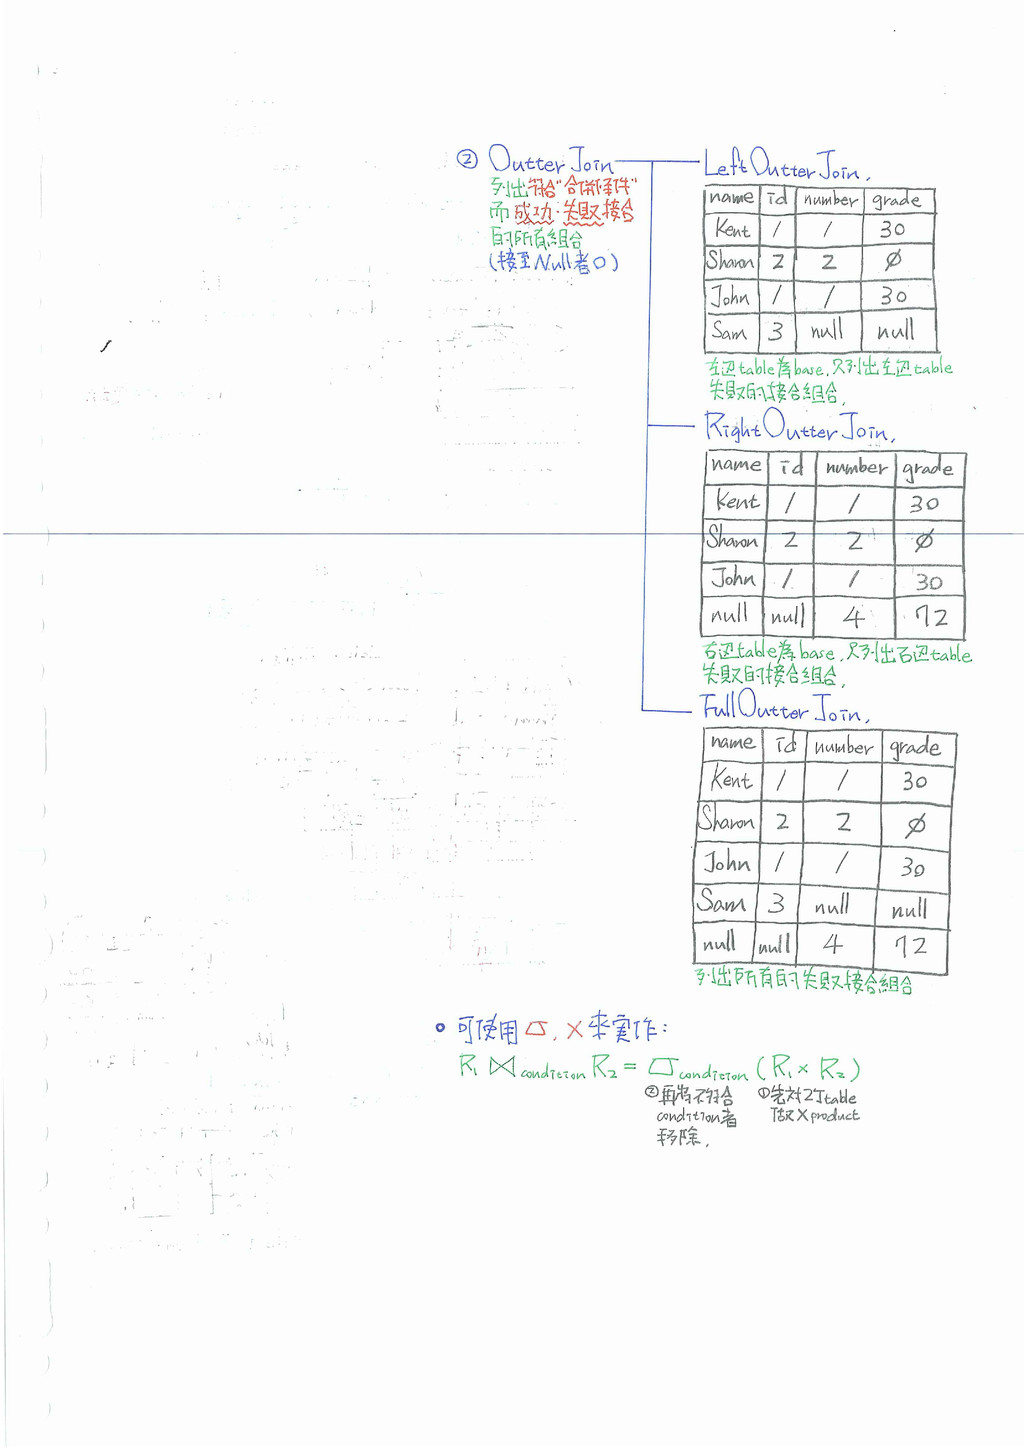 ② Outter Join
列出符合"合併條件"
而成功、失敗接合
的所有組合
(接至Null者○)
Left Outter Join.
name id number grade
Kent 1 1 30
Sharon 2 2 ∅
John 1 1 30
Sam 3 null null
左边table為base,只列出左边table
失敗的接合組合.
Right Outter Join.
name id number grade
Kent 1 1 30
Sharon 2 2 ∅
John 1 1 30
null null 4 72
右边table為base,只列出右边table
失敗的接合組合.
Full Outter Join.
name id number grade
Kent 1 1 30
Sharon 2 2 ∅
John 1 1 30
Sam 3 null null
null null 4 72
列出所有的失敗接合組合
可使用σ, ×來實作:
R₁ ⋈condition R₂ = σcondition (R₁ × R₂)
②再將不符合
condition者
移除.
①先対2丁table
做×product